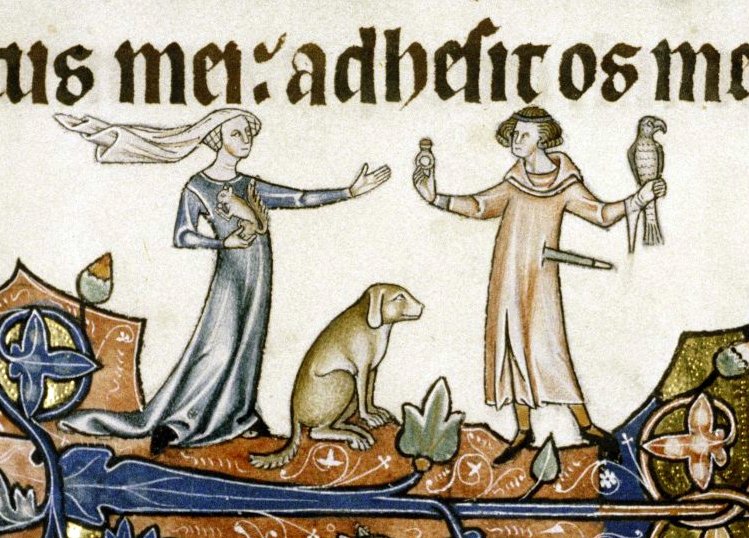 tus mei: adhesit os me